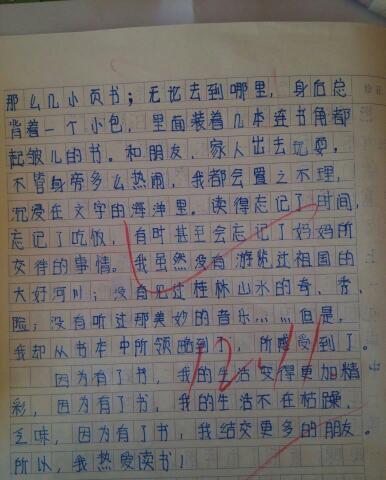 那么几小页书；无论去到哪里，身后总
背着一个小包，里面装着几本连书角都
起皱儿的书。和朋友、家人出去玩耍，
不管身旁多么热闹，我都会置之不理，
沉浸在文字的海洋里。读得忘记了时间，
忘记了吃饭，有时甚至会忘记了妈妈所
交待的事情。我虽然没有游览过祖国的
大好河川；没有见过桂林山水的奇、秀、
险；没有听过那美妙的音乐……但是，
我却从书本中所领略到了，所感受到了。
因为有了书，我的生活变得更加精
彩，因为有了书，我的生活不在枯躁、
乏味，因为有了书，我结交更多的朋友。
所以，我热爱读书！
12.11